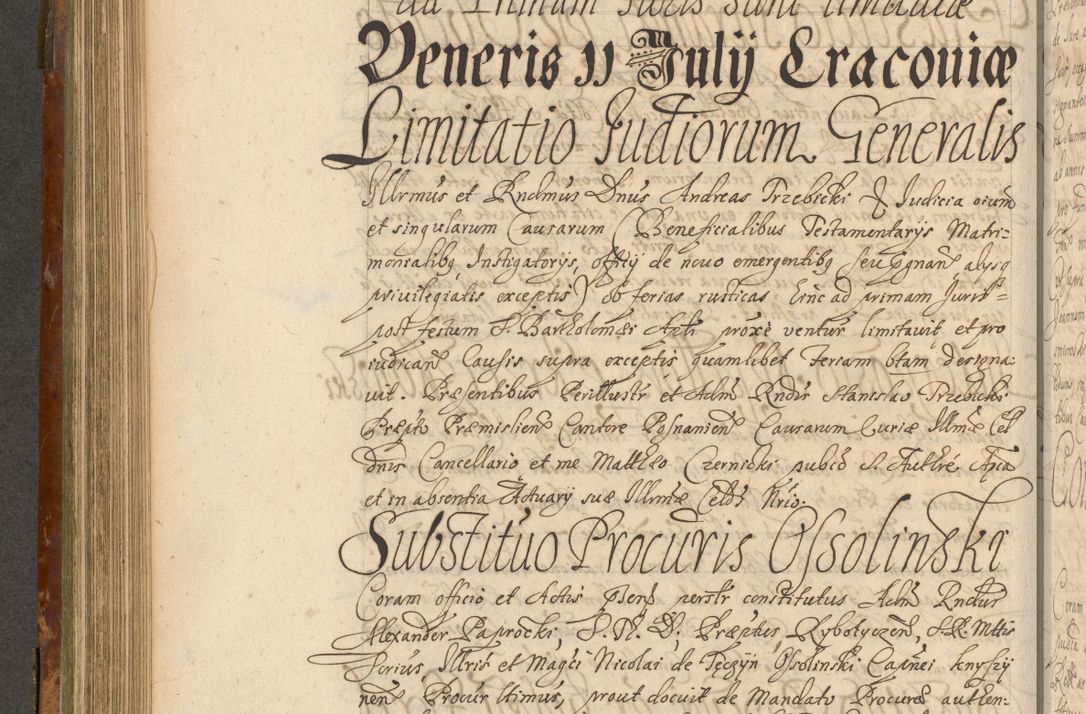 ad Primam Juris sunt limitatæ
Veneris 11 Julÿ Cracouiæ
Limitatio Judiorum Generalis
Illrmus et Rndmus Dnus Andreas Trzebicki Judicia oium
et singularum Causarum (Beneficialibus Testamentarÿs Matri:
monialibq Instigatorÿs, offtÿ de nouo emergentibq seu pgnan alÿsq
priuilegiatis exceptis) ob ferias rusticas hinc ad primam Juris
post festum S. Bartholomæi Apli proxe ventur limitauit et pro
iudican Causis supra exceptis quamlibet feriam btam designa:
uit. Præsentibus Perillustr et Adm Rndis Stanislao Trzebicki
Præpto Præmislien Cantore Posnanien Causarum Curiæ Illmæ Cel
dnis Cancellario et me Mattheo Czernicki pubco S. Authre Apca
et in absentia Actuarÿ suæ Illrmæ Celds Nrio.
Substituo Procuris Ossolinski
Coram officio et Actis psens perslr constitutus Adm Rndus
Alexander Paprocki, S. R. D. Præptus Rybotyczen, S. R. Mttis
Scrius, Illris et Magci Nicolai de Tęczÿn Ossolinski Capnei knyszÿ
nen Procur ltimus, prout docuit de Mandato Procures authen: